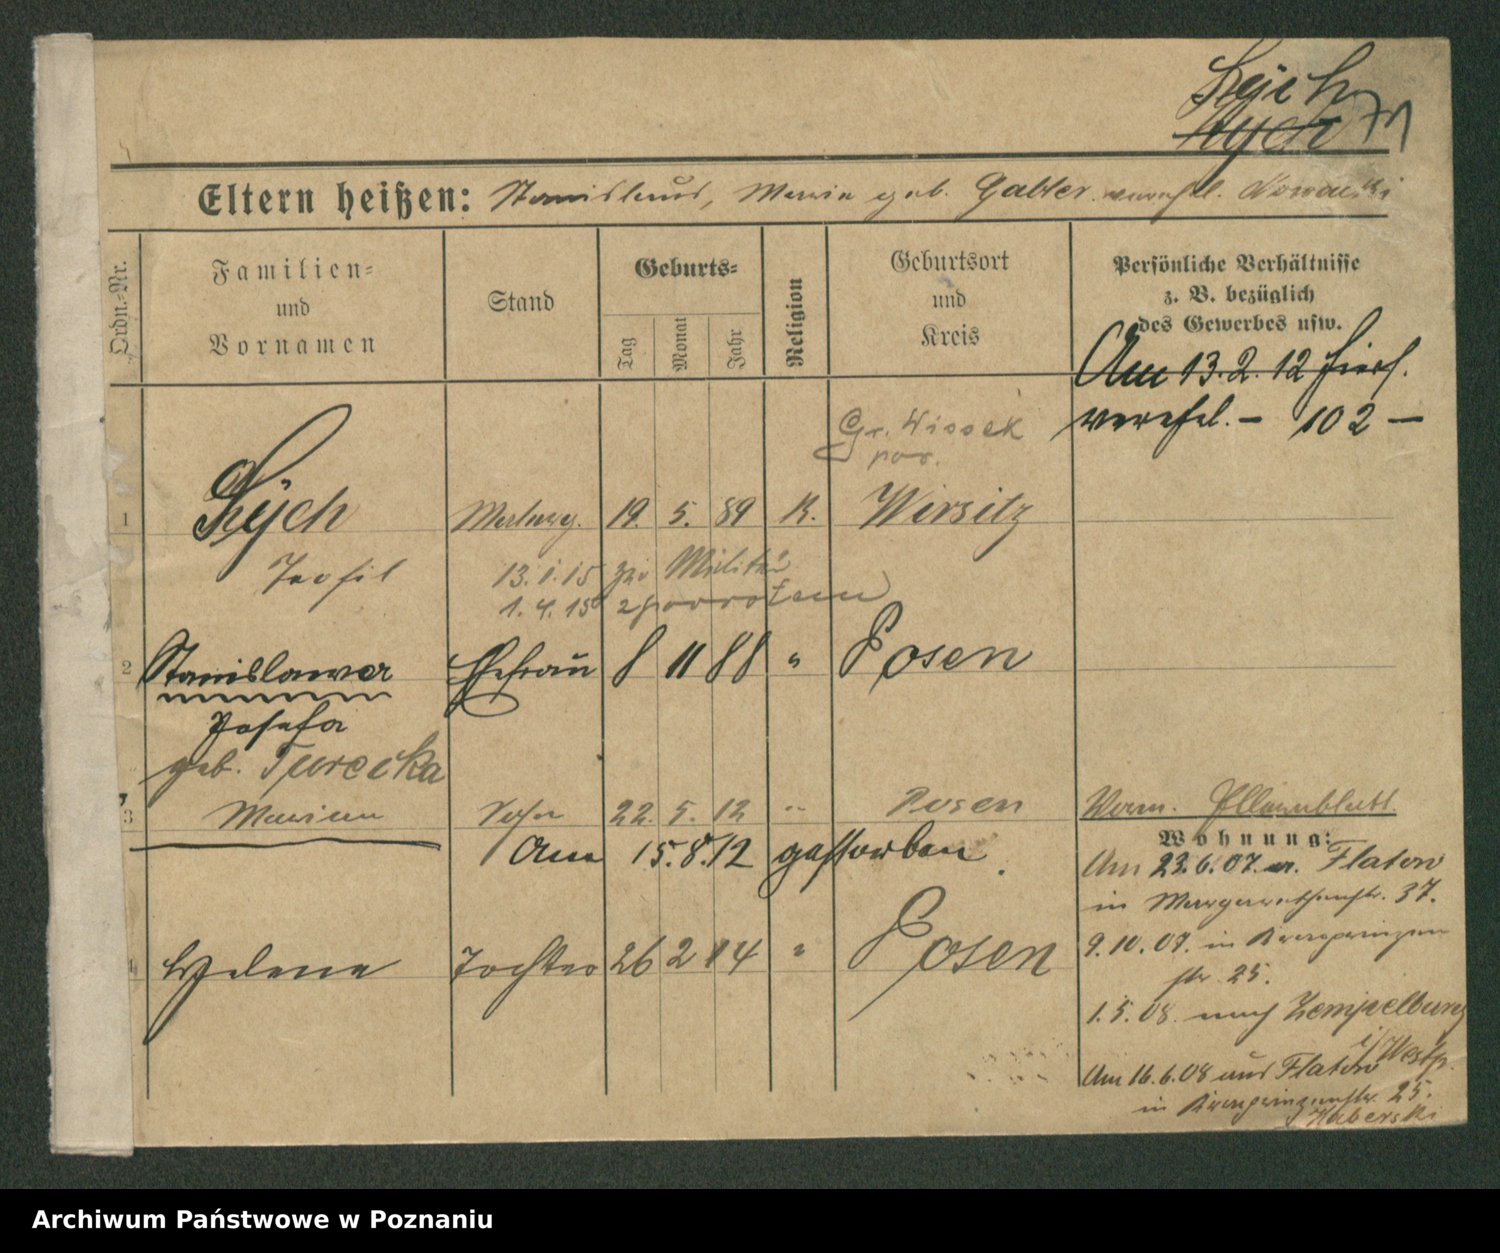 Zÿch
Zych 71
Eltern heißen: Stanislaus, Maria geb. Gabler verehel. Nowacki
Ordn.-Nr.
Familien-
und
Vornamen
Stand
Geburts-
Tag
Monat
Jahr
Religion
Geburtsort
und
Kreis
Persönliche Verhältnisse
z. B. bezüglich
des Gewerbes usw.
Am 13.2.12 hier
verehel. – 102 –
Gr. Wissek
pow.
1 Zÿch 19. 5. 89 K. Wirsitz
Teofil 13.1.15 zu Militär
1.4.15
2 Stanislawa Ehefrau 8 11 88 " Posen
Josefa
geb. Turecka
3 Marian Sohn 22. 5. 12 " Posen
Am 15.8.12 gestorben.
4 Helena Tochter 26 2 14 " Posen
Wohnung:
Am 23.6.07. a. Flatow
in Margarethenstr. 37.
9.10.07. in Kronprinzen
str. 25.
1.5.08. nach Zempelburg
i/Westp.
Am 16.6.08 aus Flatow
in Kronprinzenstr. 25.
Haberski
Archiwum Państwowe w Poznaniu